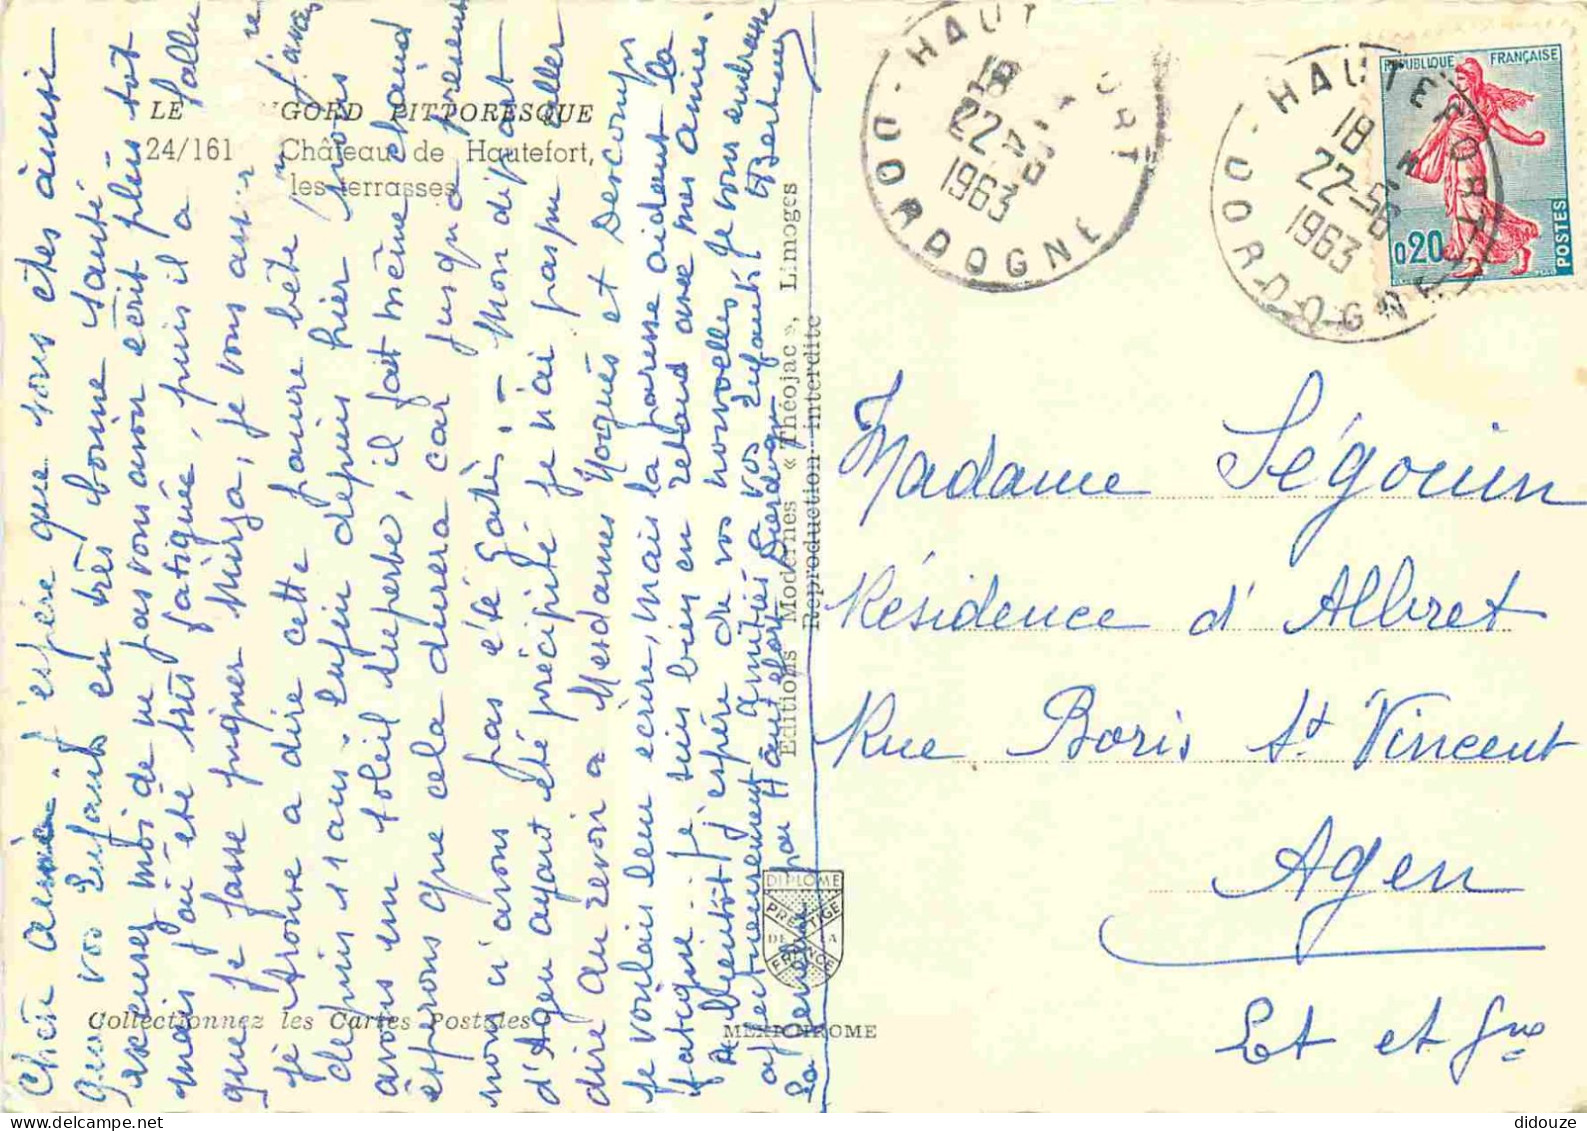 LE GORD PITTORESQUE
24/161 Château de Hautefort,
les terrasses
Chère amie. J'espère que vous êtes ainsi
que vos Enfants en très bonne Santé
excusez moi de ne pas vous avoir écrit plus tôt
mais j'ai été très fatiguée, puis il a fallu
que je fasse piquer Mirza, je vous assure
je trouve a dire cette pauvre bête j'avais
depuis 11 ans enfin depuis hier nous
avons un Soleil superbe, il fait même chaud
espérons que cela durera car jusqu'a présent
nous n'avons pas été gatés. - Mon départ
d'Agen ayant été précipité je n'ai pas pu aller
dire au revoir a Mesdames et
je voulais leur écrire, mais la paresse aidant la
fatigue je suis bien en retard avec mes amies.
A Bientôt j'espère de vos nouvelles, Je vous embrasse
affectueusement amitiés a vos Enfants
par Hautefort Dordogne
Editions Modernes « Théojac », Limoges
Reproduction interdite
DIPLOME
PRESTIGE
DE LA
FRANCE
Collectionnez les Cartes Postales
MEXICHROME
HAUT ORT
18
22
1963
DORDOGNE
HAUTEFORT
18 H
22-5
1963
DORDOGNE
REPUBLIQUE FRANÇAISE
0,20
POSTES
Madame Ségouin
Résidence d'Albret
Rue Boris St Vincent
Agen
Et et Gne
didouze